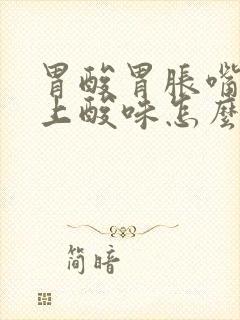 胃酸胃胀嘴
上酸味怎麼
简暗